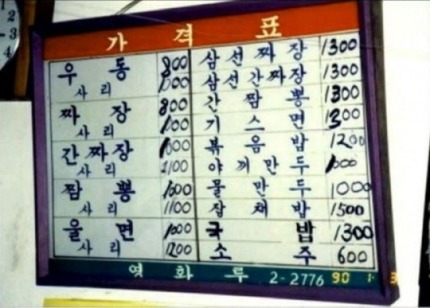 가격표
우동 800
사리 1000
짜장 800
사리 1000
간짜장 1000
사리 1100
짬뽕 1000
사리 1100
울면 1000
사리 1200
삼선짜장 1300
삼선간짜장 1300
간짬뽕 1300
기스면 1300
볶음밥 1200
야끼만두 1000
물만두 1000
잡채밥 1500
국밥 1300
소주 600
영화루 2-2776 90 1 3